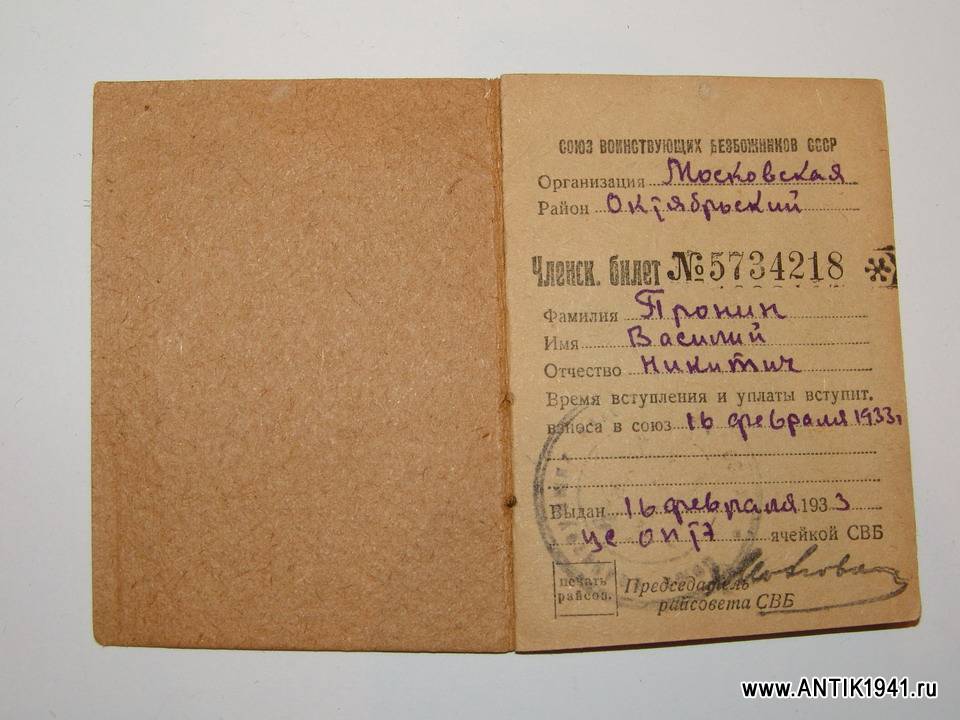 СОЮЗ ВОИНСТВУЮЩИХ БЕЗБОЖНИКОВ СССР
Организация Московская
Район Октябрьский
Членск. билет № 5734218
Фамилия Пронин
Имя Василий
Отчество Никитич
Время вступления и уплаты вступит.
взноса в союз 16 февраля 1933г
Выдан 16 февраля 1933
ячейкой СВБ
печать
райсов.
Председатель
райсовета СВБ
www.ANTIK1941.ru